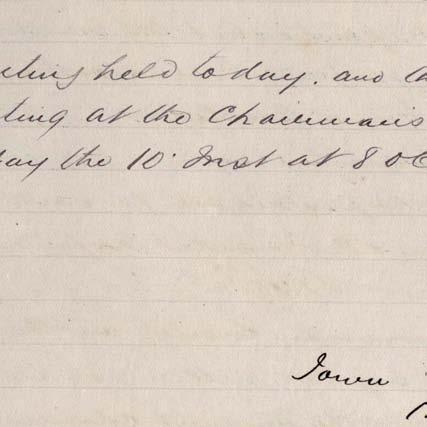 eting held today. and th
ting at the Chairman's
day the 10' Inst at 8 oC
Town